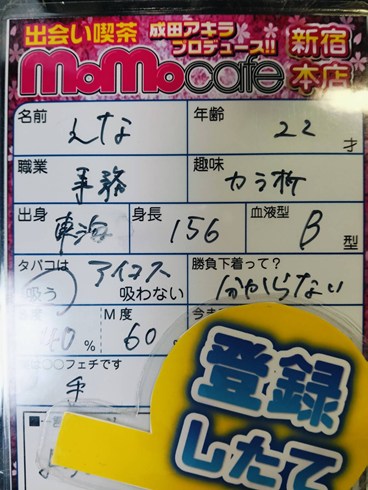 出会い喫茶 成田アキラ プロデュース!! 新宿本店
MoMocafe
名前 えな 年齢 22 才
職業 事務 趣味 カラオケ
出身 東海 身長 156 血液型 B 型
タバコは アイコス 勝負下着って?
吸う 吸わない 分からない
40 % M度 60
フェチです
手
登録
したて